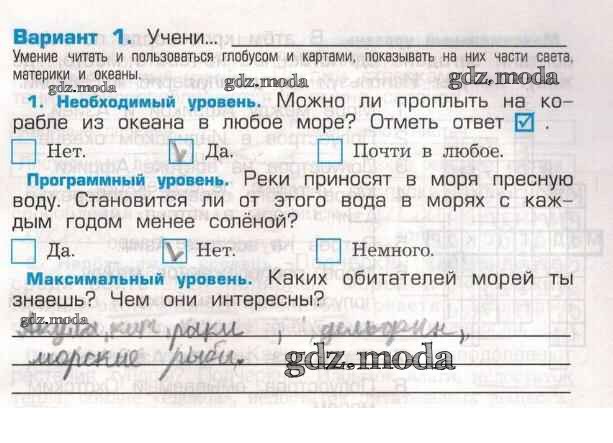 Вариант 1. Учени...
Умение читать и пользоваться глобусом и картами, показывать на них части света,
материки и океаны.
gdz.moda gdz.moda gdz.moda
1. Необходимый уровень. Можно ли проплыть на ко-
рабле из океана в любое море? Отметь ответ ☑ .
Нет. Да. Почти в любое.
Программный уровень. Реки приносят в моря пресную
воду. Становится ли от этого вода в морях с каж-
дым годом менее солёной?
Да. Нет. Немного.
Максимальный уровень. Каких обитателей морей ты
знаешь? Чем они интересны?
gdz.moda
Акула, кит, раки, дельфин,
морские рыбы.
gdz.moda